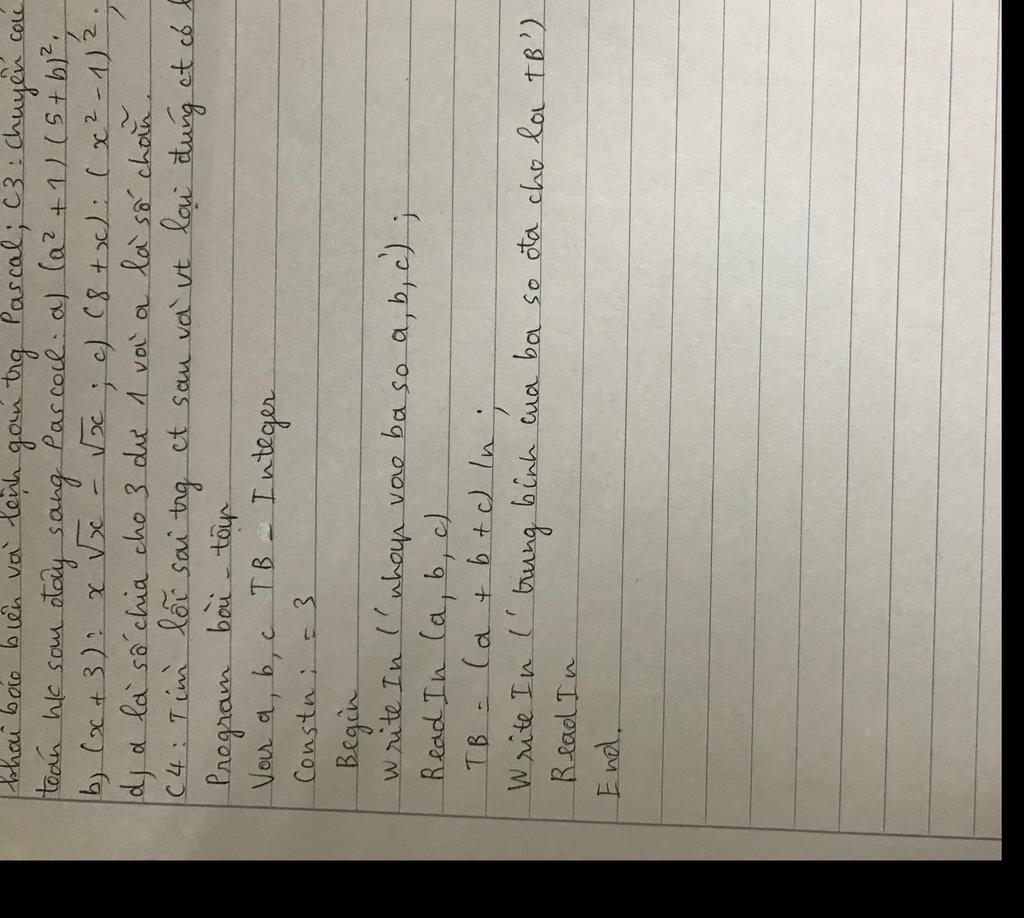 khai báo biến và lệnh gán trg Pascal; C3: chuyển các
toán h/c sau đây sang Pascal: a) (a² + 1) (5 + b)².
b) (x + 3): x √x - √x ; c) (8 + x) : (x² - 1)².
d) a là số chia cho 3 dư 1 và a là số chẵn.
C4: Tìm lỗi sai trg ct sau và vt lại đúng ct có
Program bài - tập
Var a, b, c TB = Integer
Constn : = 3
Begin
Write In (' nhap vao ba so a, b, c') ;
Read In (a, b, c)
TB = (a + b + c) In ;
Write In (' trung bình cua ba so đa cho la + TB')
Read In
End.